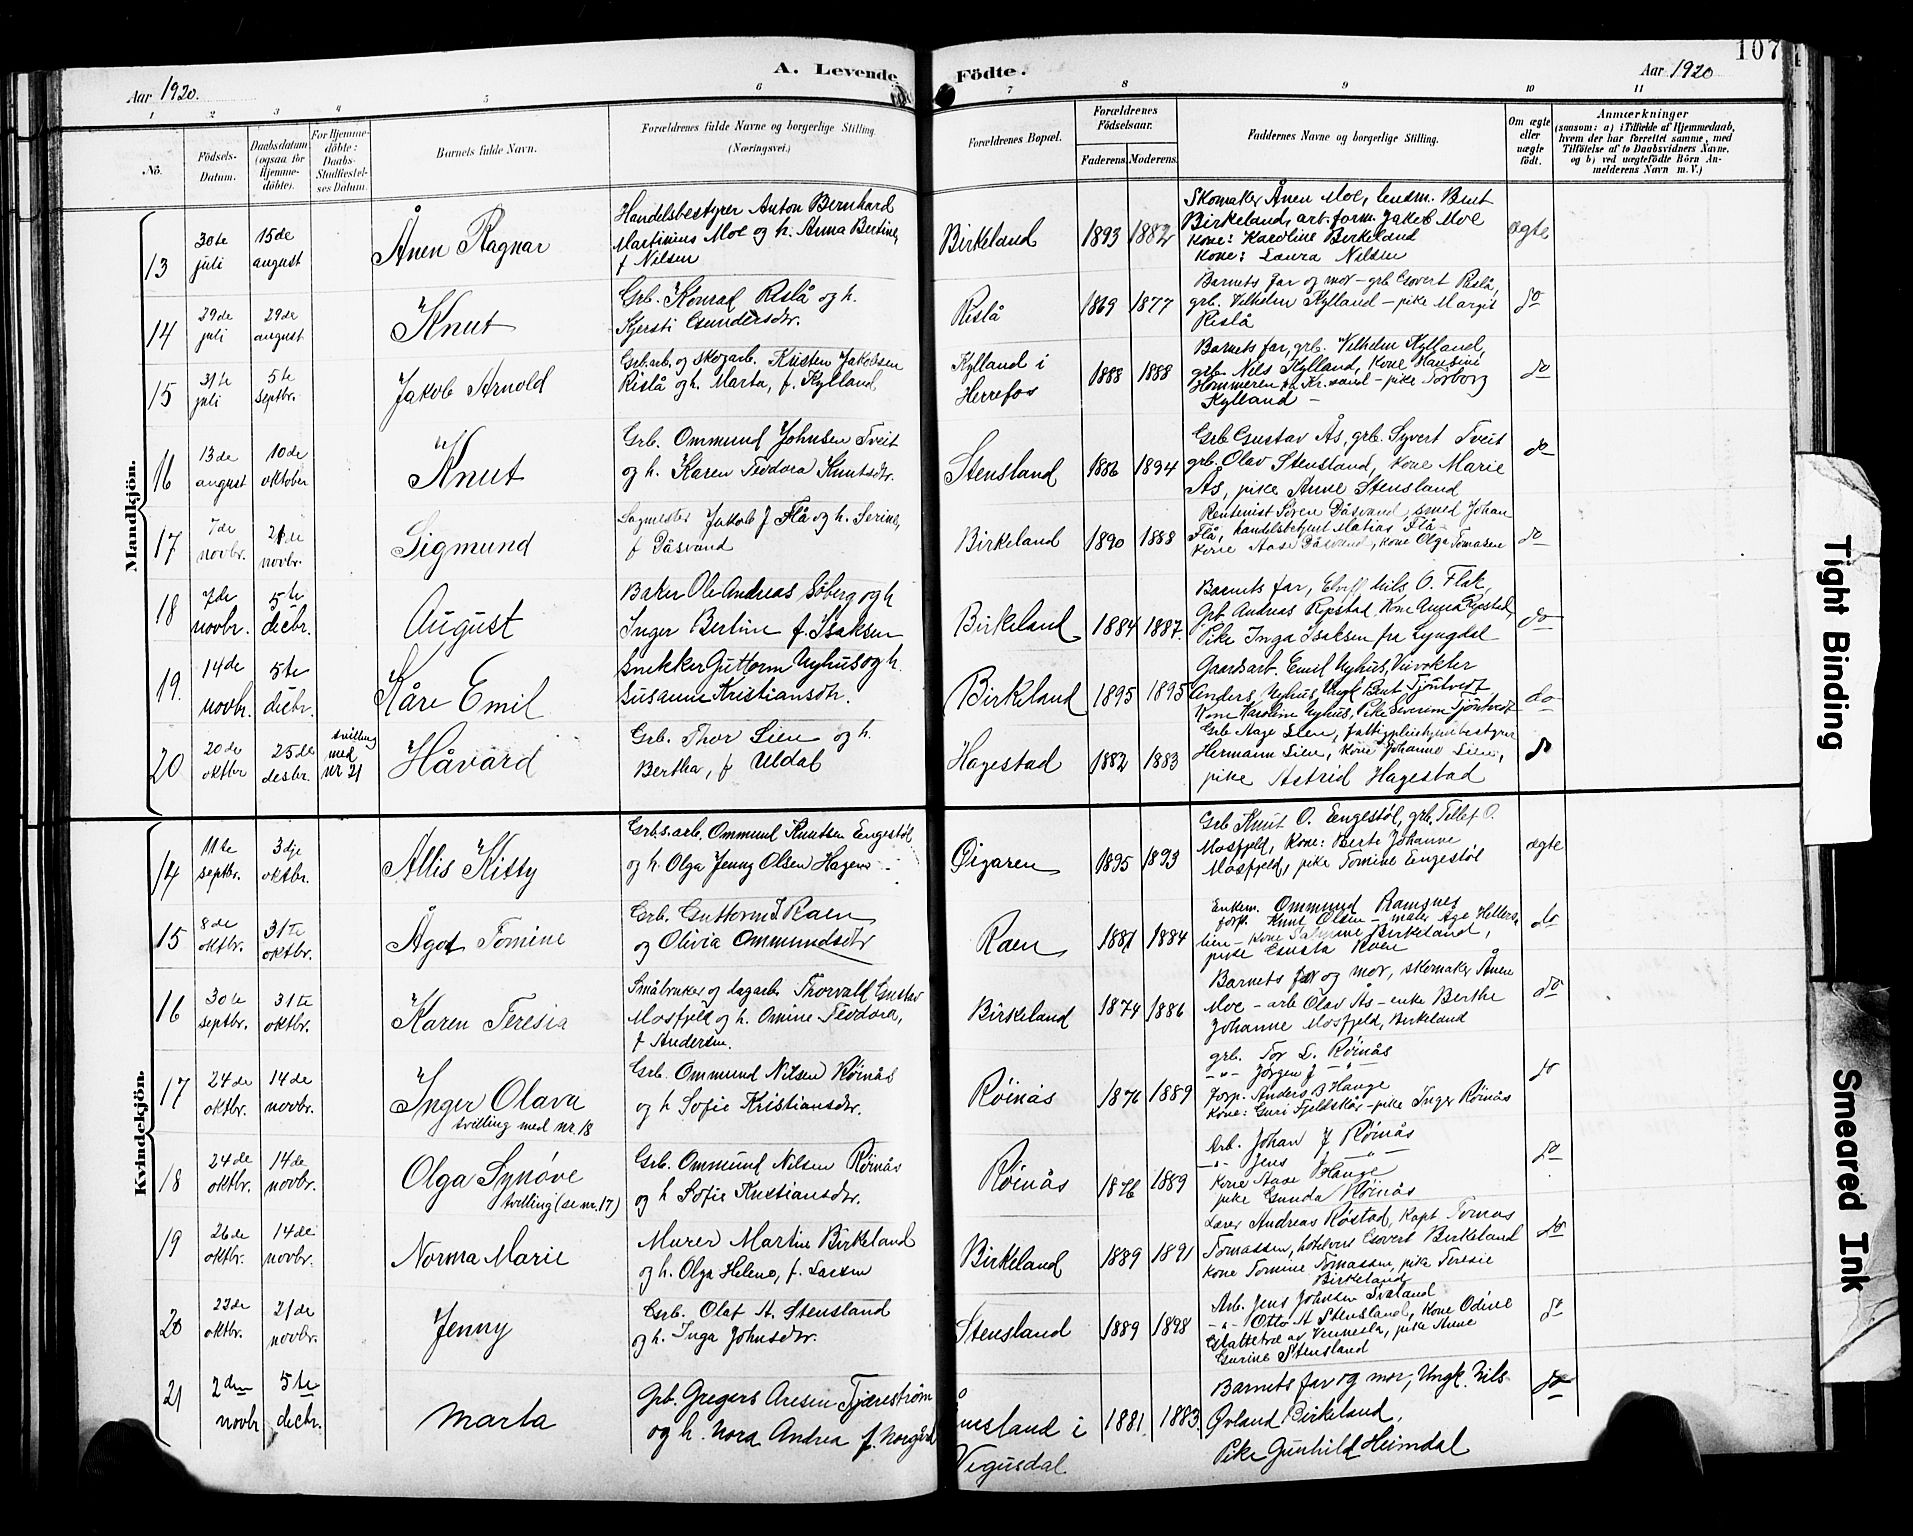 107
A. Levende Fødte.
Aar 1920.
Aar 1920
1 2 3 4 5 6 7 8 9 10 11
No.
Fødsels-Datum.
Daabsdatum (ogsaa for Hjemmedøbte).
For Hjemmedøbte: Daabs-Stadfæstelses Datum.
Barnets fulde Navn.
Forældrenes fulde Navne og borgerlige Stilling.
(Næringsvei.)
Forældrenes Bopæl.
Forældrenes Fødselsaar.
Faderens. Moderens.
Faddernes Navne og borgerlige Stilling.
Om ægte eller uægte født.
Anmærkninger
(saasom: a) i Tilfælde af Hjemmedaab, hvem der har forrettet samme, med Tilføielse af to Daabsvidners Navne, og b) ved uægtefødte Børn Anmelderens Navn m. V.)
Mandkjön.
13 30te juli 15de august Ånen Ragnar
Handelsbestyrer Anton Bernhard
Martinius Moe og h. Anna Bertine,
f Nilsen
Birkeland 1893 1882
Skomaker Ånen Moe, lensm. Bent
Birkeland, arb.form. Jakob Moe
Kone: Karoline Birkeland
Kone: Laura Nilsen
ægte
14 29de juli 29de august Knut
Grb. Konrad Rislå og h.
Kjersti Gundersdtr.
Rislå 1869 1877
Barnets far og mor – grb Govert Rislå,
grb. Vilhelm Kylland – pike Margit
Rislå
do
15 31te juli 5te septbr. Jakob Arnold
Grb.arb. og skogarb. Kristen Jakobsen
Rislå og h. Marta, f. Kylland
Kylland i
Herrefos
1888 1888
Barnets far, grb. Vilhelm Kylland,
grb. Nils Kylland, Kone Hansine
Hommeren på Kr.sand – pike Torborg
Kylland –
do
16 13de august 10de oktober Knut
Grb. Ommund Johnsen Tveit
og h. Karen Teodora Knutsdtr.
Stensland 1886 1894
Grb Gustav Ås, grb. Syvert Tveit
grb. Olav Stensland, Kone Marie
Ås, pike Anne Stensland
do
17 7de novbr. 21de novbr. Sigmund
Sagmester Jakob J Flå og h. Serine,
f Dåsvand
Birkeland 1890 1888
Rentenist Søren Dåsvand, smed Johan
Flå, handelsbetjent Matias Flå –
Kone Aase Dåsvand, Kone Olga Tomassen
do
18 7de novbr. 5te decbr. August
Baker Ole Andreas Söberg og h
Inger Bertine f. Isaksen
Birkeland 1884 1887.
Barnets far, Nils O. Flak,
Grb. Andreas Ripstad, Kone Anna Ripstad,
Pike Inga Isaksen fra Lyngdal
do
19. 14de novbr. 5te decbr. Kåre Emil
Snekker Guttorm Nyhus og h.
Susanne Kristiansdtr.
Birkeland 1895 1895
Gaardsarb. Emil Nyhus, Veivokter
Anders Nyhus, Ungk Bent Tjöntvedt
Kone Karoline Nyhus, Pike Severine Tjöntvedt
do
20 20de oktbr 25de desbr. tvilling med nr 21 Håvård
Grb. Thor Lien og h.
Bertha, f Uldal
Hagestad 1882 1883
Grb Aage Lien, fattigpleiehjembestyrer
Hermann Lien, Kone Johanne Lien,
pike Astrid Hagestad
do
Kvindekjön.
14 11te septbr. 3dje oktbr. Allis Kitty
Grb.s.arb. Ommund Knutsen Engestøl
og h. Olga Jenny Olsen Hagen
Øigaren 1895 1893
Grb Knut O. Engestøl, grb. Tellef O.
Mosfjeld, Kone: Berte Johanne
Mosfjeld, pike Tomine Engestøl
ægte
15 8de oktbr. 31te oktbr. Ågot Tomine
Grb. Guttorm T Raen
og Olivia Ommundsdtr
Raen 1881 1884
Enkem. Ommund Ramsnes
forp. Knut Olsen – maler Åge Hellers-
lien – Kone Birkeland,
pike Gusta Raen
do
16 30te septbr. 31te oktbr. Karen Teresia
Småbruker og dagarb. Thorvald Gustav
Mosfjeld og h. Omine Teodora,
f Andersen.
Birkeland 1874 1886
Barnets far og mor, skomaker Ånen
Moe – arb Olav Ås – enke Berthe
Johanne Mosfjeld, Birkeland
do
17 24de oktbr. 14de novbr. Inger Olava
tvilling med nr. 18
Grb. Ommund Nilsen Røinås
og h Sofie Kristiansdtr.
Røinås 1876 1889
grb. Tor L. Røinås
–"– Jørgen J –"–
Forp. Anders B Hauge
Kone: Guri Fjeldskår – pike Inger Røinås
do
18 24de oktbr. 14de novbr. Olga Synøve
tvilling (se nr. 17)
Grb. Ommund Nilsen Røinås
og h Sofie Kristiansdtr.
Røinås 1876 1889
Arb. Johan J Røinås
–"– Jens J –"–
Kone Aase Hauge
pike Gunda Røinås
do
19 26de oktbr. 14de novbr. Norma Marie
Murer Martin Birkeland
og h. Olga Helene, f. Larsen
Birkeland 1889 1891
Lærer Andreas Røstad, Kapt Tomas
Tomassen, Govert Birkeland
Kone Tomine Tomassen, pike Teresie
Birkeland
do
20 22de oktbr. 21de novbr. Jenny
Grb. Olaf A. Stensland
og h. Inga Johnsdtr.
Stensland 1889 1898
Arb. Jens Johnsen Tveland
–"– Otto A Stensland, Kone Odine
Glattetre av Vennesla, pike Anne
Gurine Stensland
do
21 2den novbr 5te decbr. Marta
Grb. Gregers Aresen Tjærestrøm
og h. Nora Andrea f. Norgård
Vegusdal
1881. 1883.
Barnets far og mor, Ungk. Nils
Øvland Birkeland,
Pike Gunhild Heimdal
do
Tight Binding
Smeared Ink